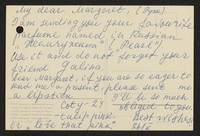 My dear Margaret, (Pyza)
I am sending you your favourite
perfume named in Russian
"Жемчужина" ("Pearl")
Use it and do not forget your
friend Galina.
Dear Margaret, if you are so eager to
send me a present, please send me
a lipstick I'll be so much
Coty - 29 obliged to you
"calif. pink" Best wishes
or "Love that pink"